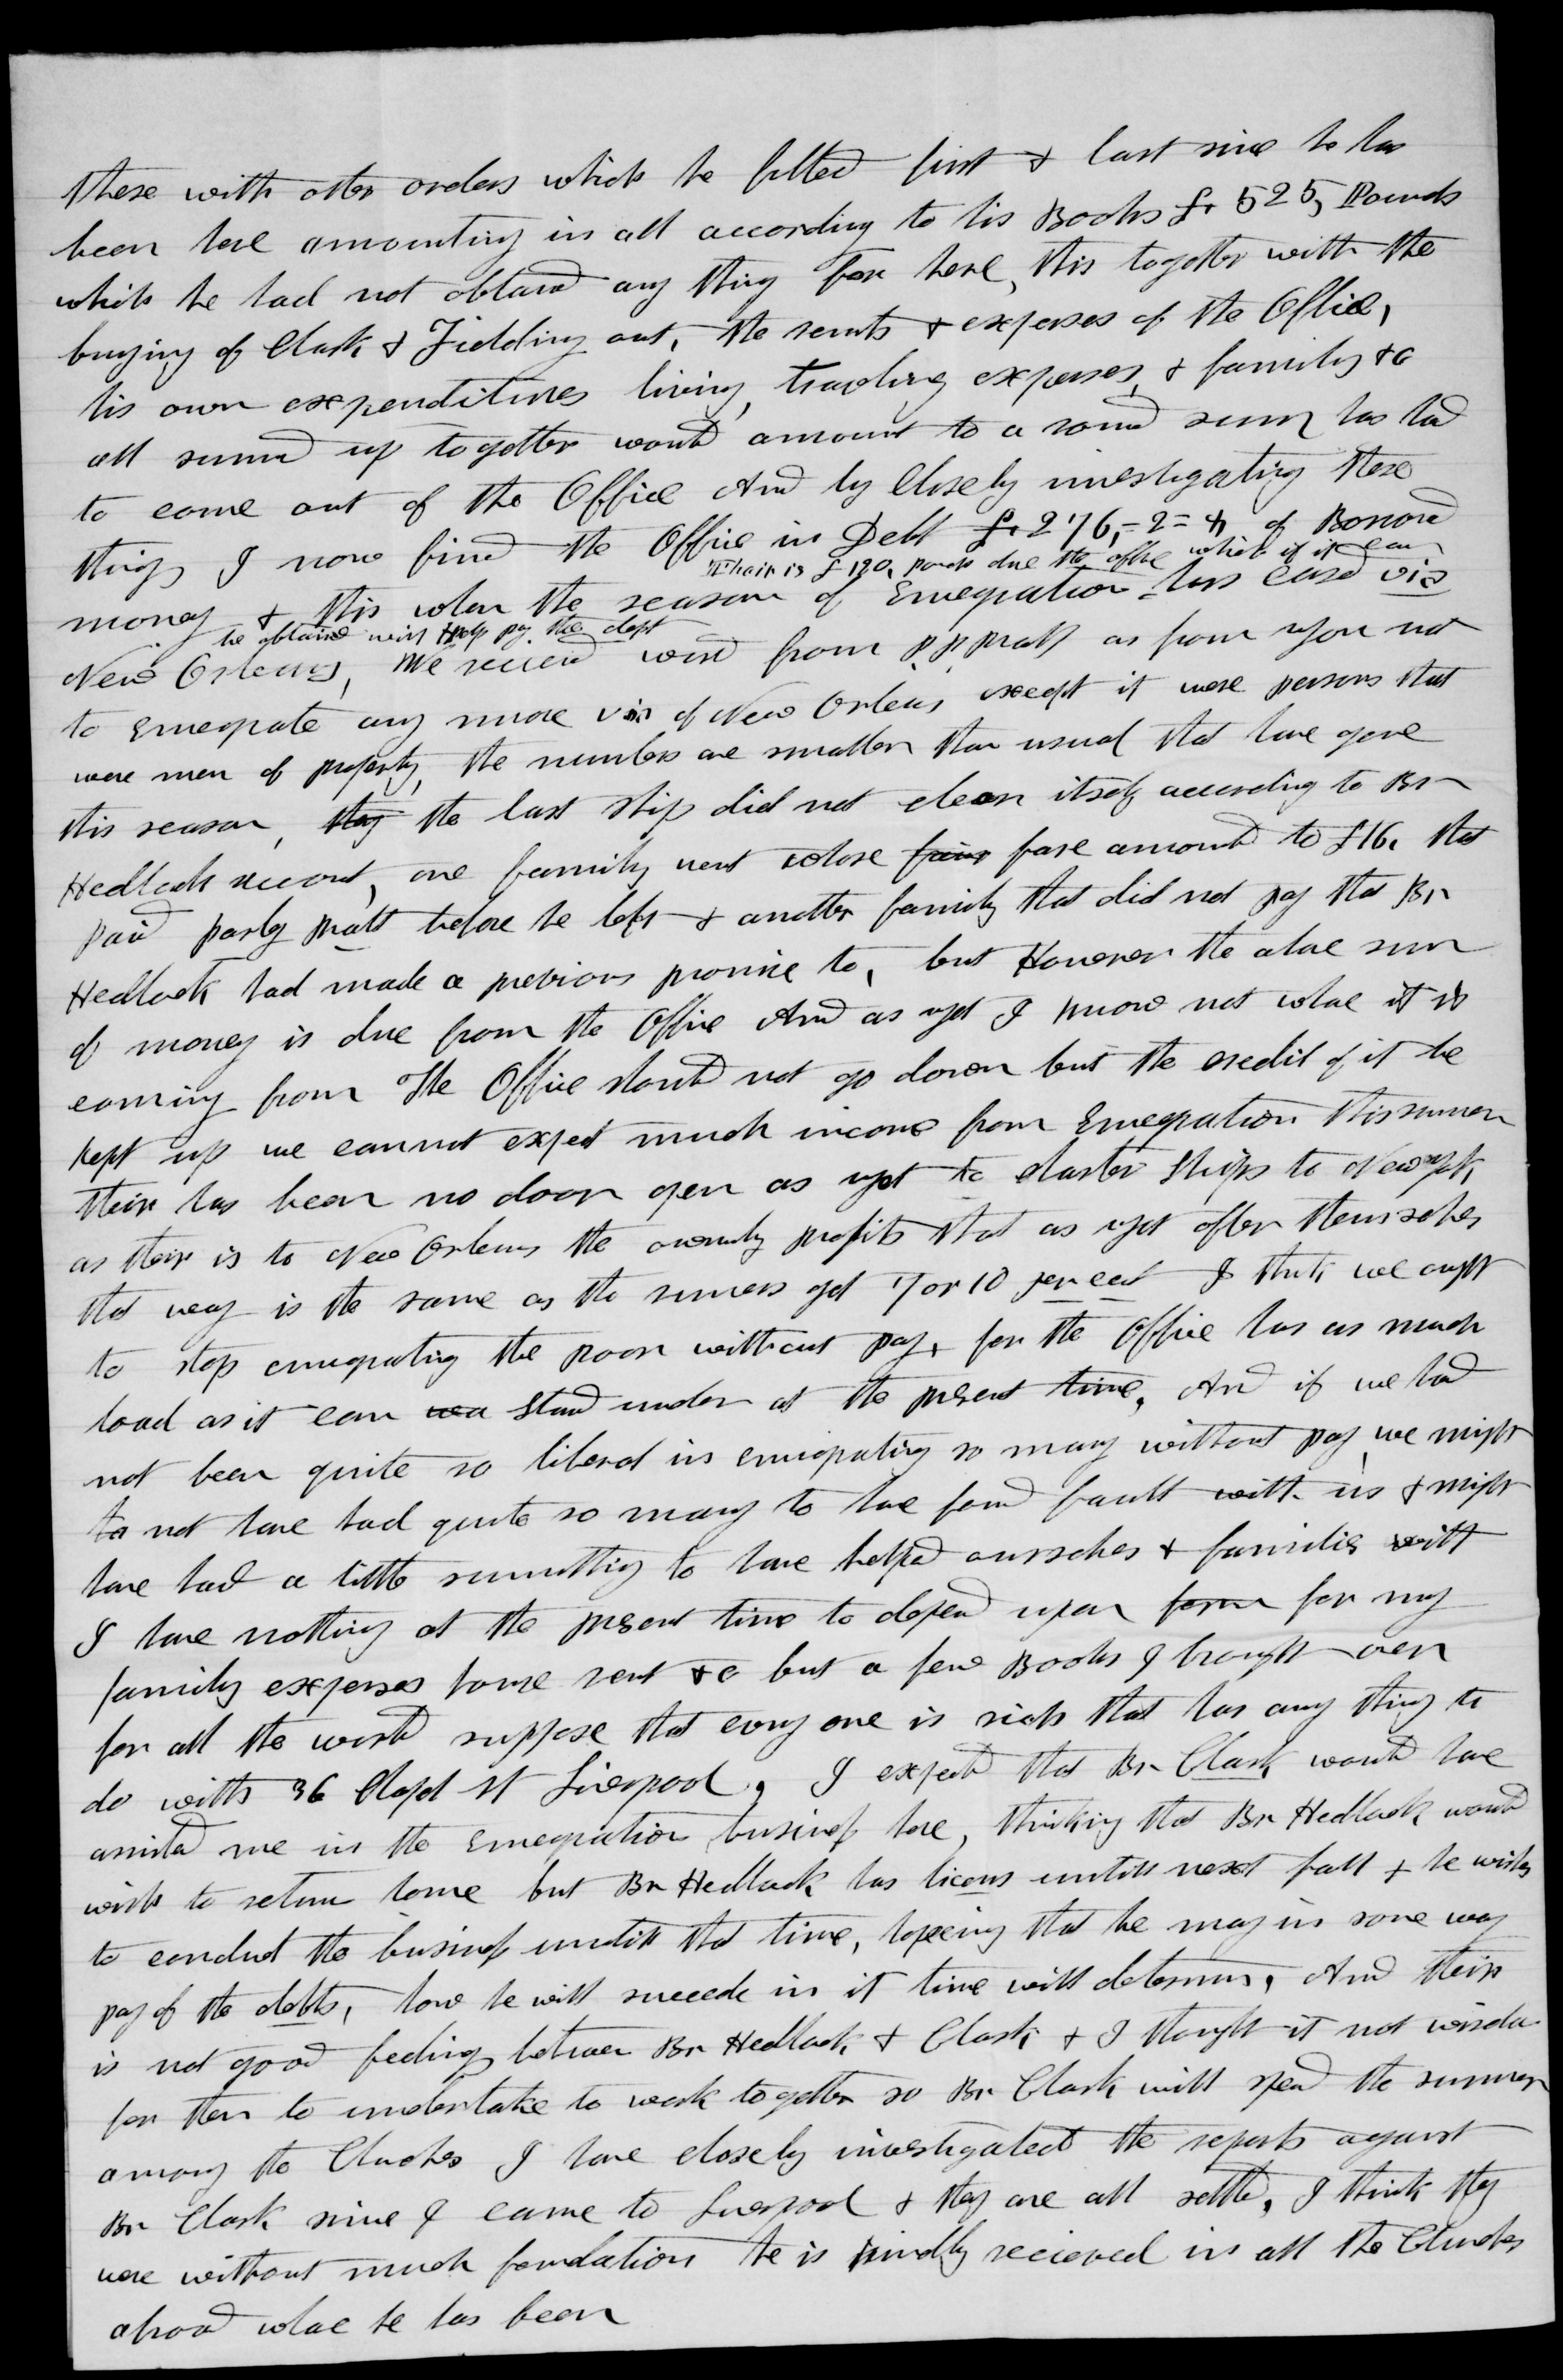 these with other orders which he filled first & last since he has
been here amounting in all according to his Books £. 525, Pounds
which he had not obtaind any thing for here, this together with the
buying of Clark & Fielding out, the rents & expenses of the Office,
his own expenditures living, traveling expenses, & family &c
all sumed up together would amount to a round sum has had
to come out of the Office And by closely investigating these
things I now find the Office in Debt £. 276,-2=4 of Borrowd
Thair is £120, pounds due the office which if it can
money & this when the season of Emegration has ceasd via
be obtained will Help pay the dept
New Orleans, We recievd word from P P Pratt as from you not
to Emegrate any more via of New Orleans except it were persons that
were men of property, the numbers are smaller than usual that have gone
this season, they the last ship did not clear itself according to Br
Hedlock account, one family went whose fair fare amountd to £16. that
paid parley Pratt before he left & another family that did not pay that Br
Hedlock had made a previous promise to, but However the above sum
of money is due from the Office And as yet I know not whare it is
coming from The Office should not go down but the credit of it be
kept up we cannot expect much income from Emegration this summer
their has been no door open as yet to charter Ships to New York,
as their is to New Orleans the ownly profits that as yet offer themselves
that way is the same as the runers get 7 or 10 per cent I think we ought
to stop emegrating the poor without pay, for the Office has as much
load as it can wea stand under at the present time, And if we had
not been quite so liberal in emigrating so many without pay we might
to not have had quite so many to have found fault with us & might
have had a little sumthing to have helped ourselves & families with
I have nothing at the present time to depend upon form for my
family expenses house rent &c but a few Books I brought over
for all the world suppose that evry one is rich that has any thing to
do with 36 Chapel St Liverpool, I expected that Br Clark would have
assisted me in the Emegration business here, thinking that Br Hedlock would
wish to return home but Br Hedlock has licens untill next fall & he wishes
to conduct the business untill that time, hopeing that he may in some way
pay of the debts, how he will succede in it time will determin, And their
is not good feelings between Br Hedlock & Clark & I thought it not wisdom
for them to undertake to work together so Br Clark will spend the summer
among the Churches I have closely investigated the reports against
Br Clark since I came to Liverpool & they are all settled, I think they
were without much foundation he is kindly recieved in all the Churches
abroad whare he has been